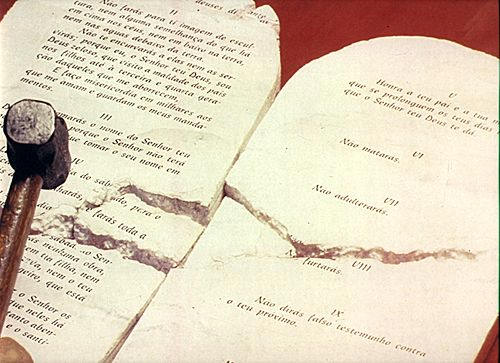 II
deuses di
Não farás para ti imagem de escul-
tura, nem alguma semelhança do que há
em cima nos céus, nem em baixo na terra,
nem nas águas debaixo da terra.
Não te encurvarás a elas nem as ser-
virás; porque eu, o Senhor teu Deus, sou
Deus zeloso, que visito a maldade dos pais
até à terceira e quarta gera-
ção daqueles que me aborrecem,
E faço misericórdia em milhares aos
que me amam e guardam os meus manda-
mentos.
III
marás o nome do Senhor teu
porque o Senhor não terá
que tomar o seu nome em
IV
do sábado, para o
farás toda a
dia
sábad do Sen-
nenhuma obra,
tua filha, nem
nem o teu
geiro, que está
o Senhor os
que neles há
tanto aben-
e o santi-
V
Honra a teu pai e a tua m
que se prolonguem os teus dias
que o Senhor teu Deus te dá
VI
Não matarás.
VII
Não adulterarás.
VIII
furtarás.
IX
Não dirás falso testemunho contra
o teu próximo.